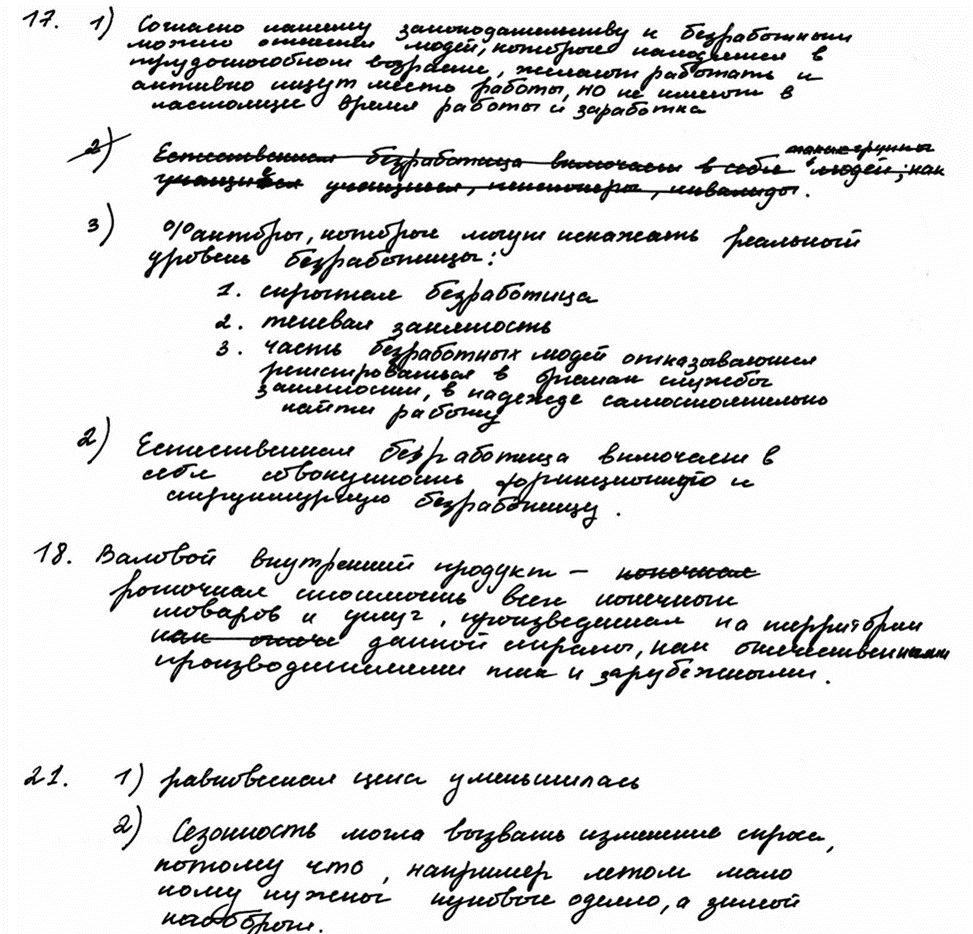 17. 1) Согласно нашему законодательству к безработным
можно отнести людей, которые находятся в
трудоспособном возрасте, желают работать и
активно ищут место работы, но не имеют в
настоящее время работы и заработка
2) Естественная безработица включает в себя такие группы людей, как
учащиеся, пенсионеры, инвалиды.
3) Факторы, которые могут искажать реальный
уровень безработицы:
1. скрытая безработица
2. теневая занятость
3. часть безработных людей отказываются
регистрироваться в органах службы
занятости, в надежде самостоятельно
найти работу
2) Естественная безработица включает в
себя совокупность фрикционную и
структурную безработицу.
18. Валовой внутренний продукт – конечная
рыночная стоимость всех конечных
товаров и услуг, произведенная на территории
как отече данной страны, как отечественными
производителями так и зарубежными.
21. 1) равновесная цена уменьшилась
2) Сезонность могла вызвать изменение спроса,
потому что, например летом мало
кому нужны пуховые одеяло, а зимой
наоборот.